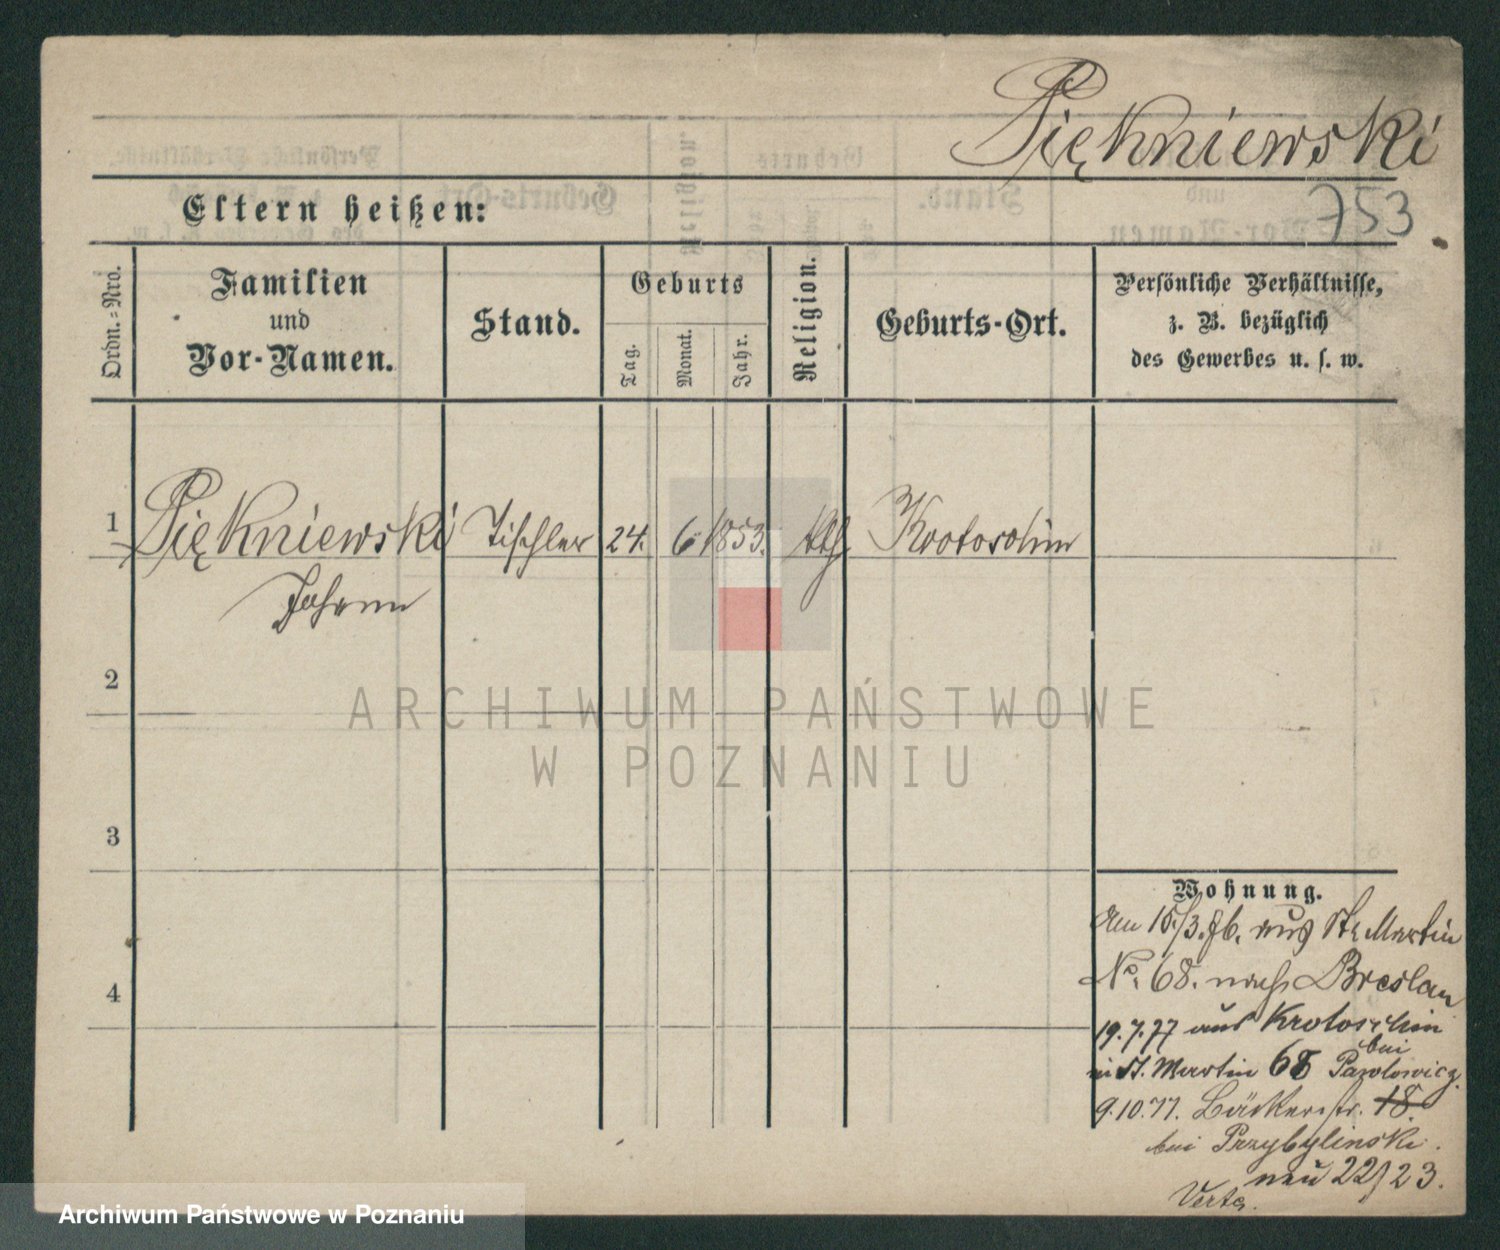 Piękniewski
Eltern heißen:
753
Ordn.=Nro.
Familien
und
Vor-Namen.
Stand.
Geburts
Tag.
Monat.
Jahr.
Religion.
Geburts-Ort.
Persönliche Verhältnisse,
z. B. bezüglich
des Gewerbes u. s. w.
1 Piękniewski Tischler 24. 6. 1853. kth. Krotoschin
Johann
2
ARCHIWUM PAŃSTWOWE
W POZNANIU
3
Wohnung.
Am 15./3.76. aus St. Martin
No. 68. nach Breslau
19.7.77 aus Krotoschin
in St. Martin 68 bei Pawlowicz.
9.10.77. Bäckerstr. 18.
bei Przybylinski.
neu 22/23.
Verte.
4
Archiwum Państwowe w Poznaniu